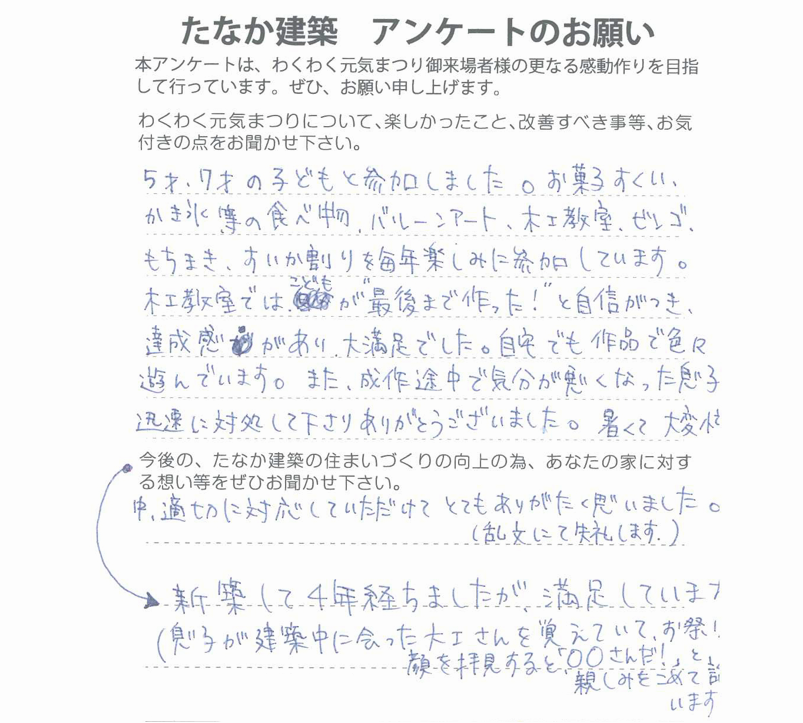 たなか建築　アンケートのお願い
本アンケートは、わくわく元気まつり御来場者様の更なる感動作りを目指
して行っています。ぜひ、お願い申し上げます。
わくわく元気まつりについて、楽しかったこと、改善すべき事等、お気
付きの点をお聞かせ下さい。
5才、7才の子どもと参加しました。お菓子すくい、
かき氷等の食べ物、バルーンアート、木工教室、ビンゴ、
もちまき、すいか割りを毎年楽しみに参加しています。
木工教室では、こどもが"最後まで作った！"と自信がつき、
達成感があり、大満足でした。自宅でも作品で色々
遊んでいます。また、成作途中で気分が悪くなった息子
迅速に対処して下さりありがとうございました。暑くて大変忙
今後の、たなか建築の住まいづくりの向上の為、あなたの家に対す
る想い等をぜひお聞かせ下さい。
中、適切に対応していただけてとてもありがたく思いました。
(乱文にて失礼します。)
新築して4年経ちましたが、満足しています
(息子が建築中に会った大工さんを覚えていて、お祭り
顔を拝見すると「○○さんだ！」と、
親しみをこめて
います